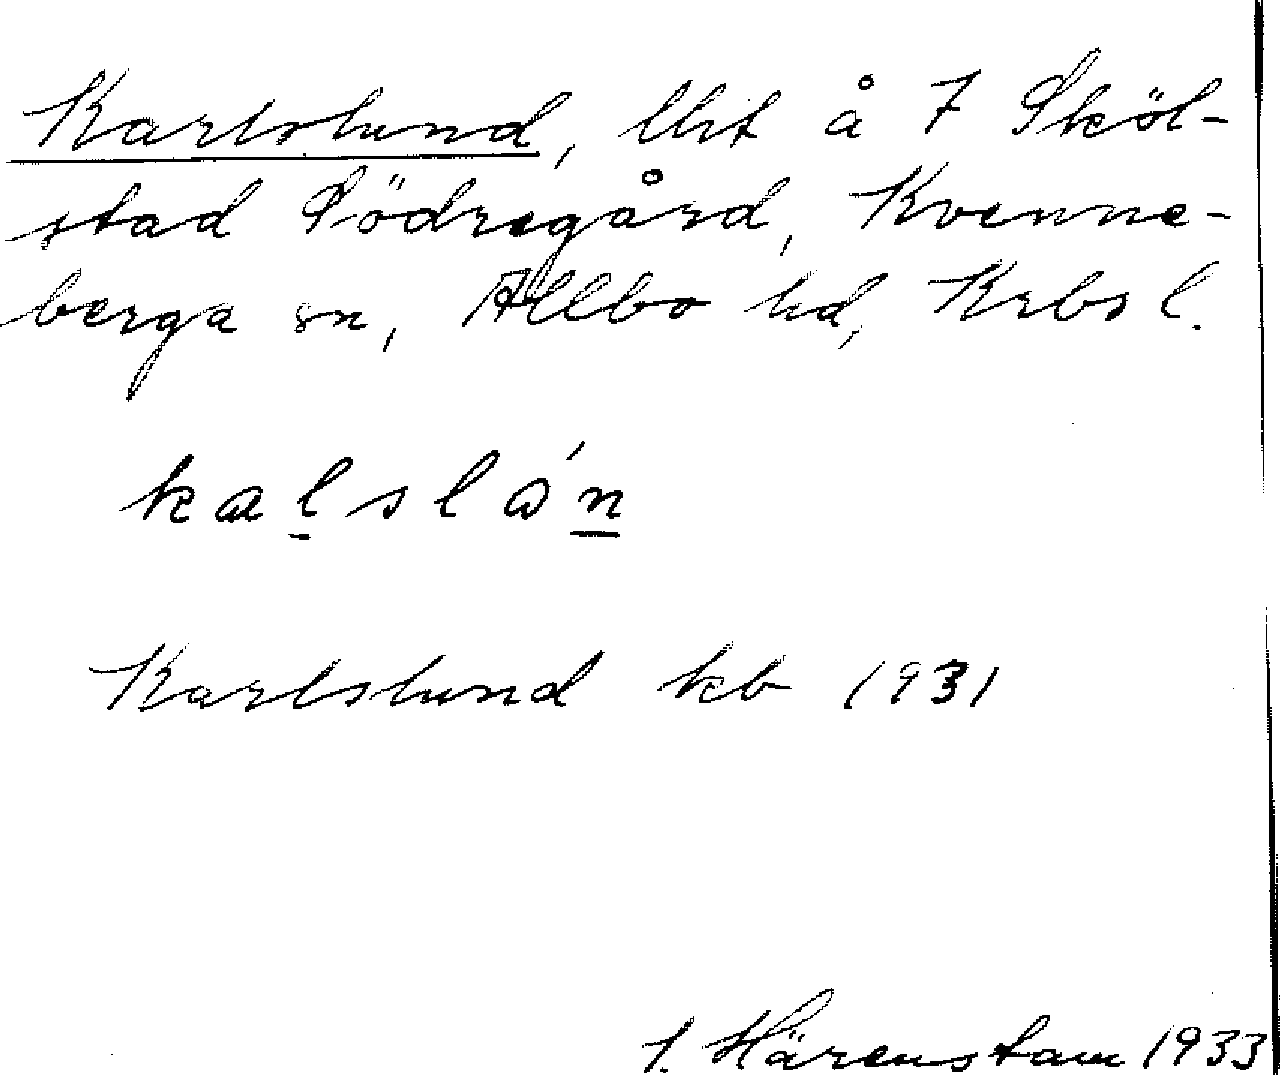 Karlslund, lht å 7 Sköl-
stad Södregård, Kvenne-
berga sn, Allbo hd, Krbs l.
kalslɷ́n
Karlslund kb 1931
S. Härenstam 1933